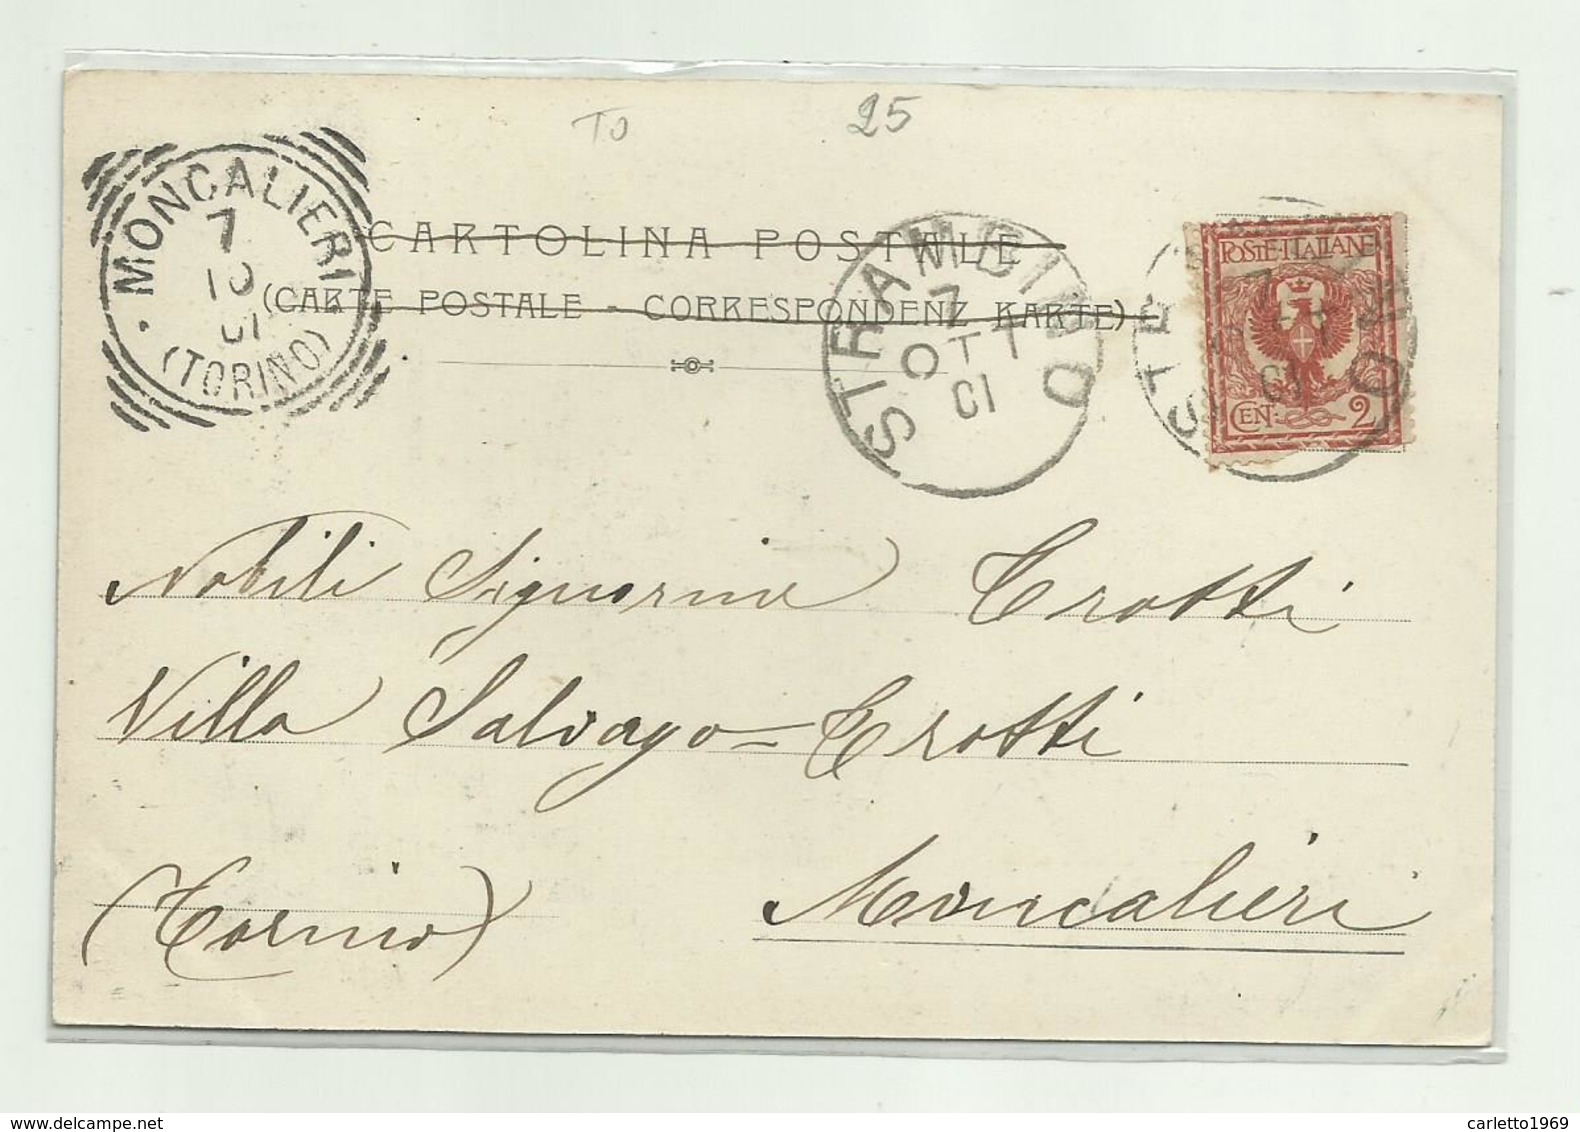 TO 25
MONCALIERI
7
10
01
(TORINO)
CARTOLINA POSTALE
(CARTE POSTALE - CORRESPONDENZ KARTE)
STRAMBINO
7
OTT
01
POSTE·ITALIANE
CEN: 2
Nobili Signorine Crotti
Villa Salvago=Crotti
(Torino) Moncalieri
carletto1969